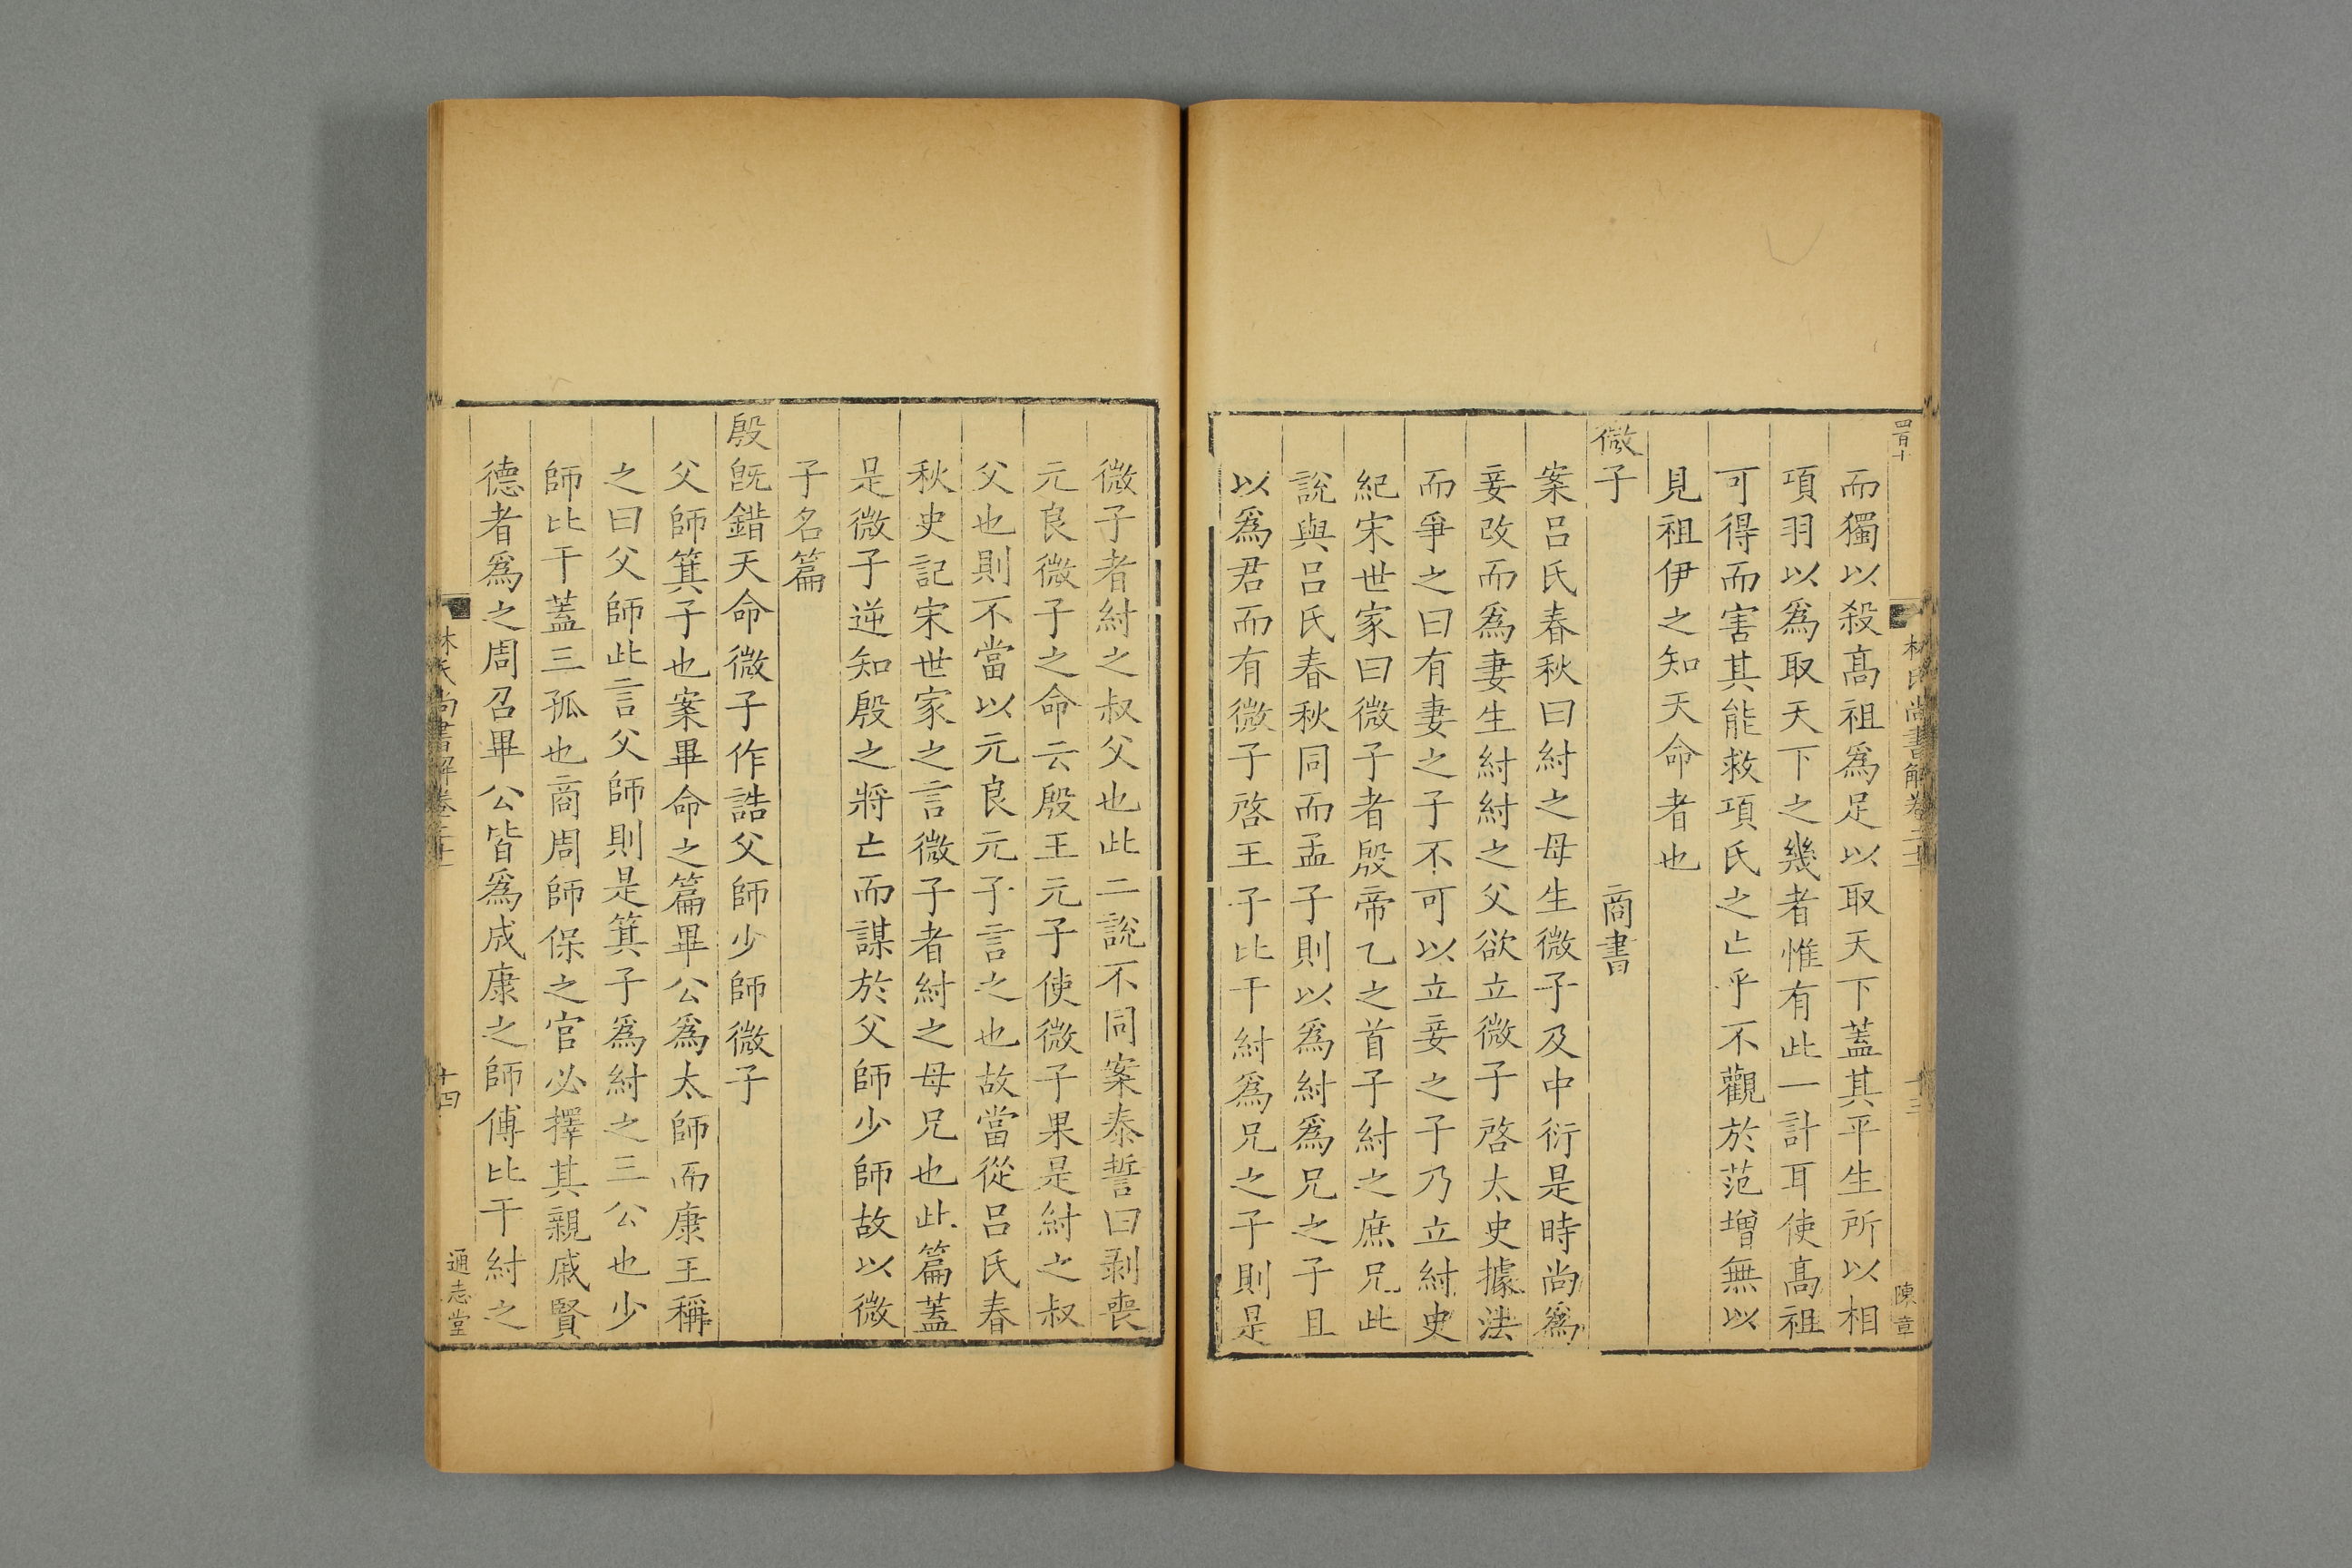 四百十
林氏尚書解卷二十
十三
陳章
而獨以殺髙祖爲足以取天下蓋其平生所以相
項羽以爲取天下之幾者惟有此一計耳使髙祖
可得而害其能救項氏之亡乎不觀於范增無以
見祖伊之知天命者也
微子 商書
案呂氏春秋曰紂之母生微子及中衍是時尚爲
妾改而爲妻生紂紂之父欲立微子啓太史據法
而爭之曰有妻之子不可以立妾之子乃立紂史
紀宋世家曰微子者殷帝乙之首子紂之庶兄此
說與呂氏春秋同而孟子則以爲紂爲兄之子且
以爲君而有微子啓王子比干紂爲兄之子則是
微子者紂之叔父也此二說不同案泰誓曰剥喪
元良微子之命云殷王元子使微子果是紂之叔
父也則不當以元良元子言之也故當從呂氏春
秋史記宋世家之言微子者紂之母兄也此篇蓋
是微子逆知殷之將亡而謀於父師少師故以微
子名篇
殷旣錯天命微子作誥父師少師微子
父師箕子也案畢命之篇畢公爲太師而康王稱
之曰父師此言父師則是箕子爲紂之三公也少
師比干蓋三孤也商周師保之官必擇其親戚賢
德者爲之周召畢公皆爲成康之師傅比干紂之
林氏尚書解卷二十
十四
通志堂